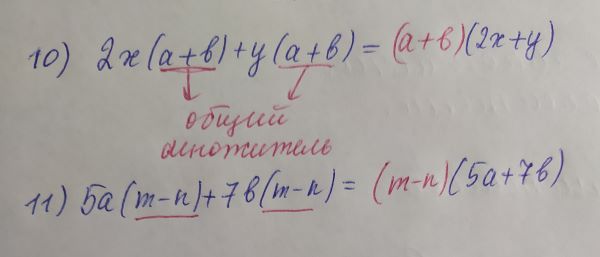 10) 2x(a+в)+y(a+в)=(a+в)(2x+y)
общий
множитель
11) 5a(m-n)+7в(m-n)=(m-n)(5a+7в)